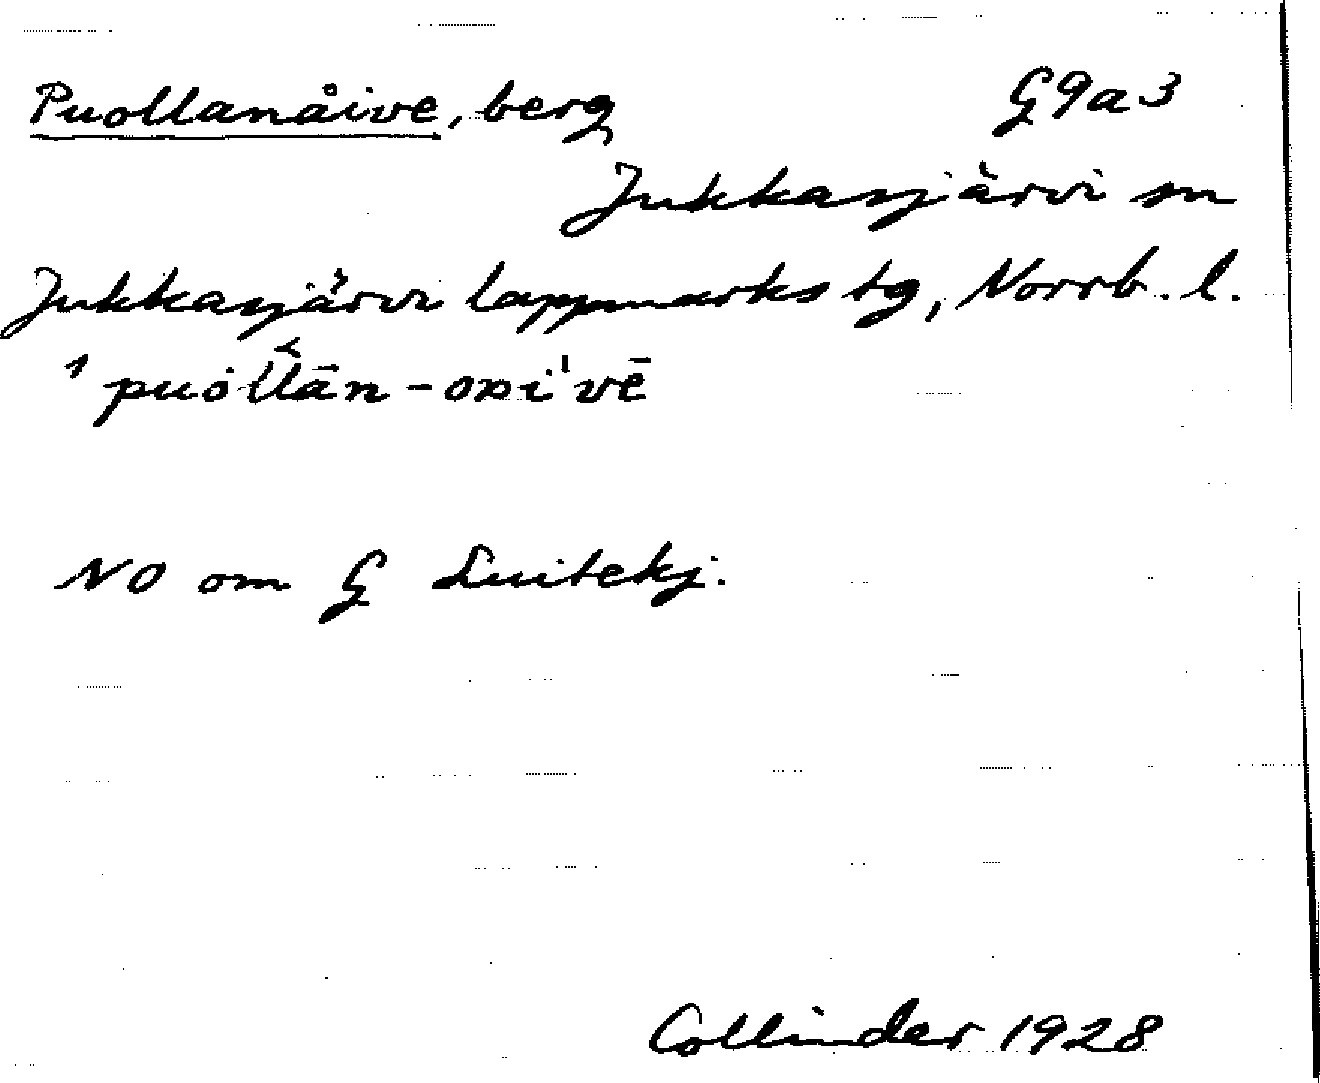 Puollanåive, berg G9a3
Jukkasjärvi sn
Jukkasjärvi lappmarks tg, Norrb. l.
NO om G Luitekj.
Collinder 1928